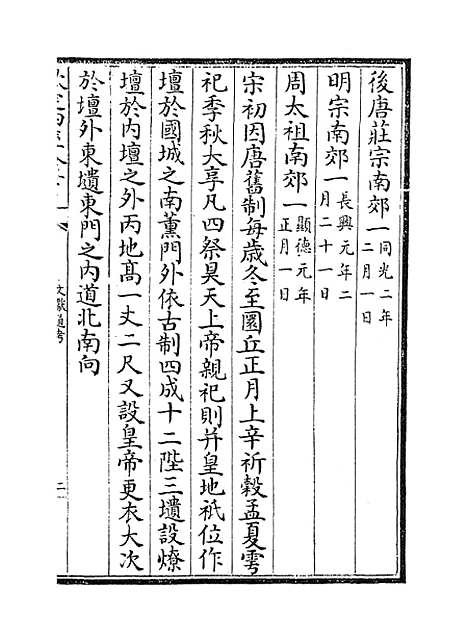 後唐莊宗南郊一同光二年二月一日
明宗南郊一長興元年二月二十一日
周太祖南郊一顯德元年正月一日
宋初因唐舊制每歳冬至圜丘正月上辛祈穀孟夏雩
祀季秋大享凡四祭昊天上帝親祀則并皇地祇位作
壇於國城之南薰門外依古制四成十二陛三壝設燎
壇於内壇之外丙地髙一丈二尺又設皇帝更衣大次
於壇外東壝東門之内道北南向
文獻通考